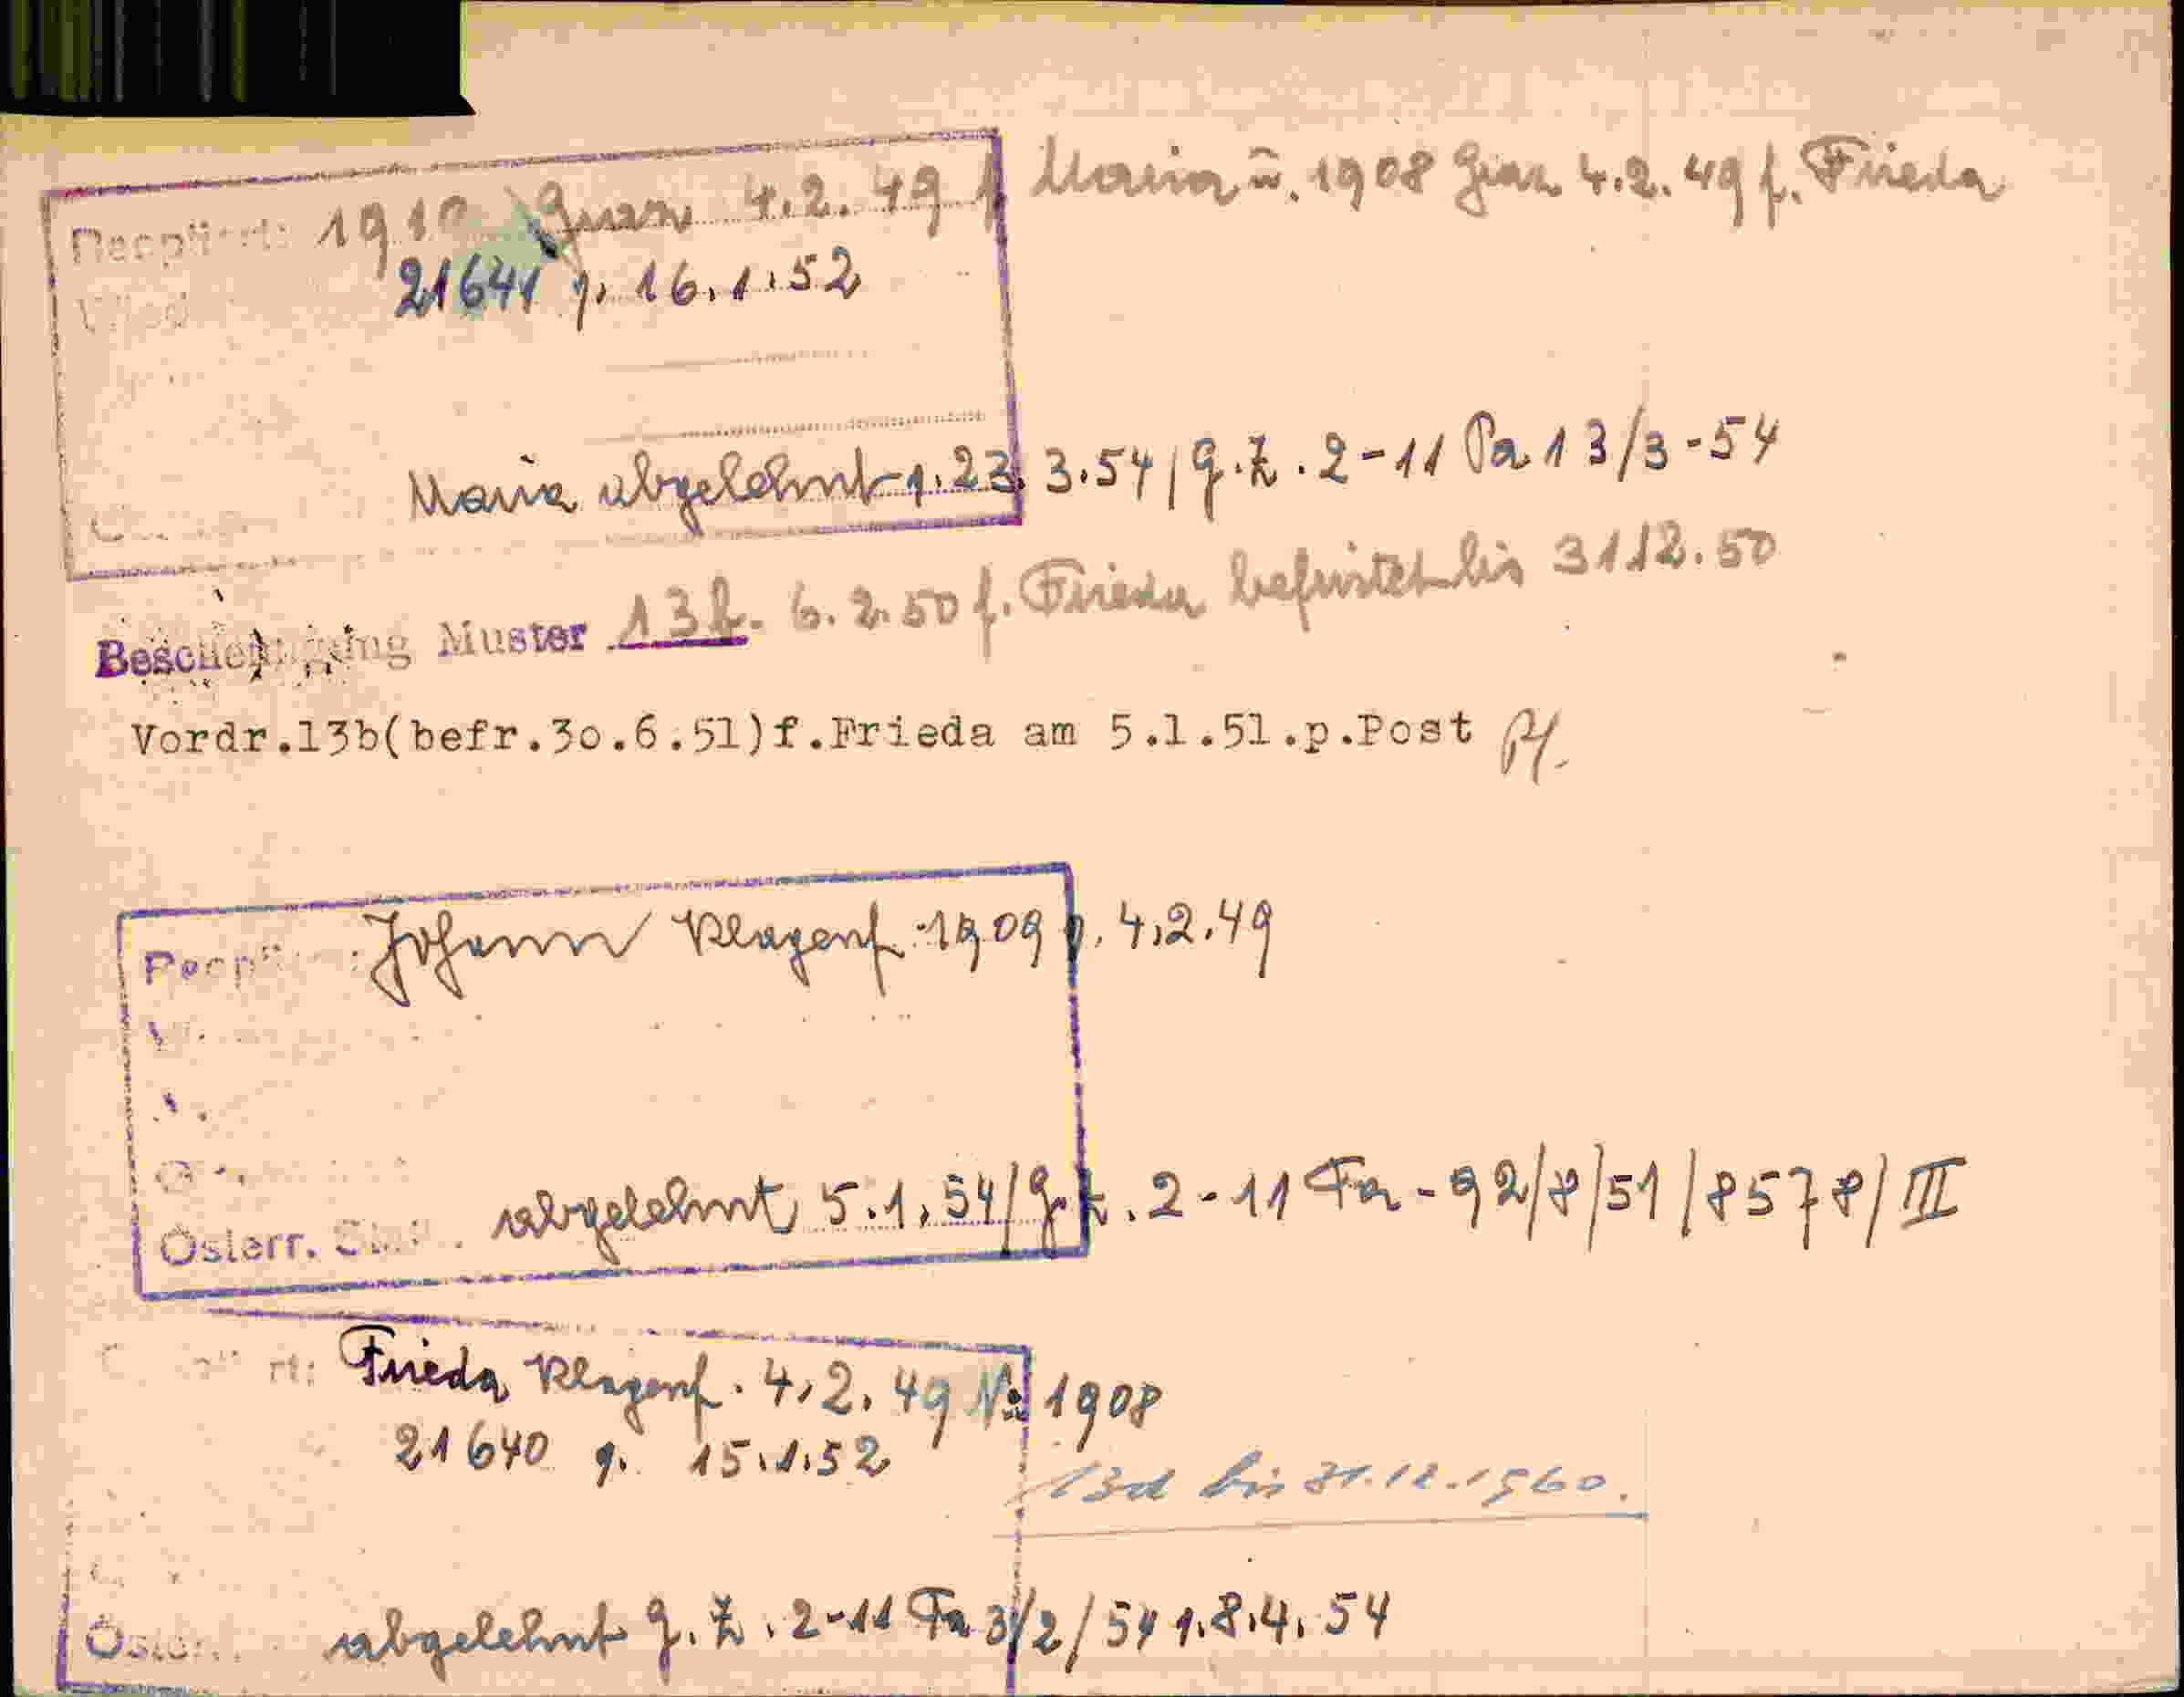 4.2.49 f. Maria u. 1908 Graz 4.2.49 f. Frieda
21641 v. 16.1.52
Maria abgelehnt v. 23.3.54/G.Z. 2-11 Pa 13/3-54
Bescheinigung Muster 13b. 6.2.50 f. Frieda befristet bis 31.12.50
Vordr.13b(befr.3o.6.51)f.Frieda am 5.1.51.p.Post
Johann Klagenf. 1909 v. 4.2.49
Österr. abgelehnt 5.1.54/G.Z. 2-11 Fa-92/8/51/8578/III
Frieda Klagenf. 4.2.49 No 1908
21640 v. 15.1.52
13d bis 31.12.1960.
abgelehnt G.Z. 2-11 Fa 3/2/54 v. 8.4.54